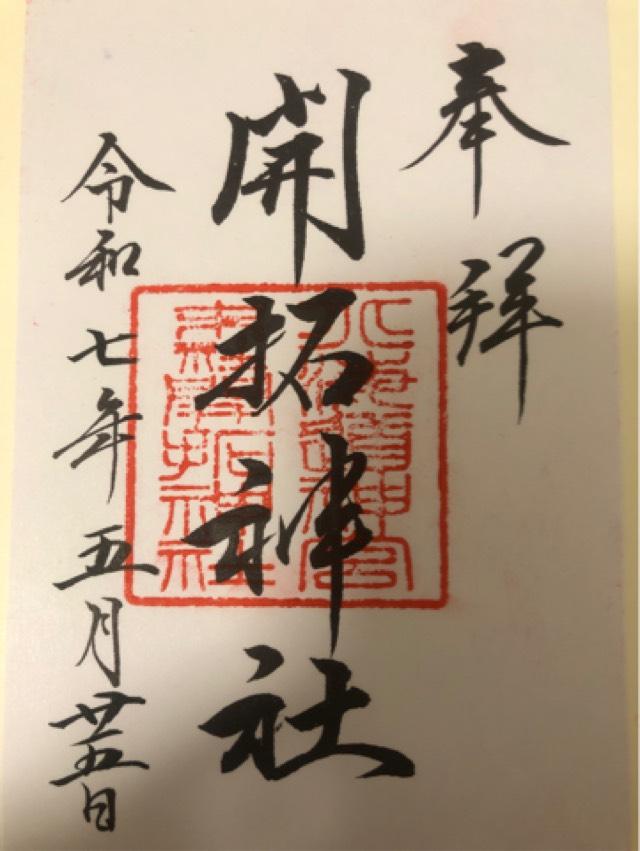 奉拝
開拓神社
北海道神宮
末社開拓神社
令和七年五月廿五日